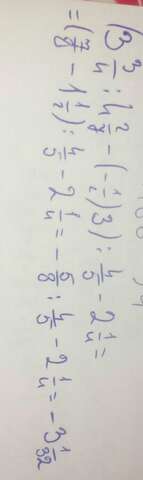 (3 3/4 : 4 2/7 - (-1/2)3) : 4/5 - 2 1/4 =
= (7/8 - 1 1/2) : 4/5 - 2 1/4 = - 5/8 : 4/5 - 2 1/4 = - 3 1/32